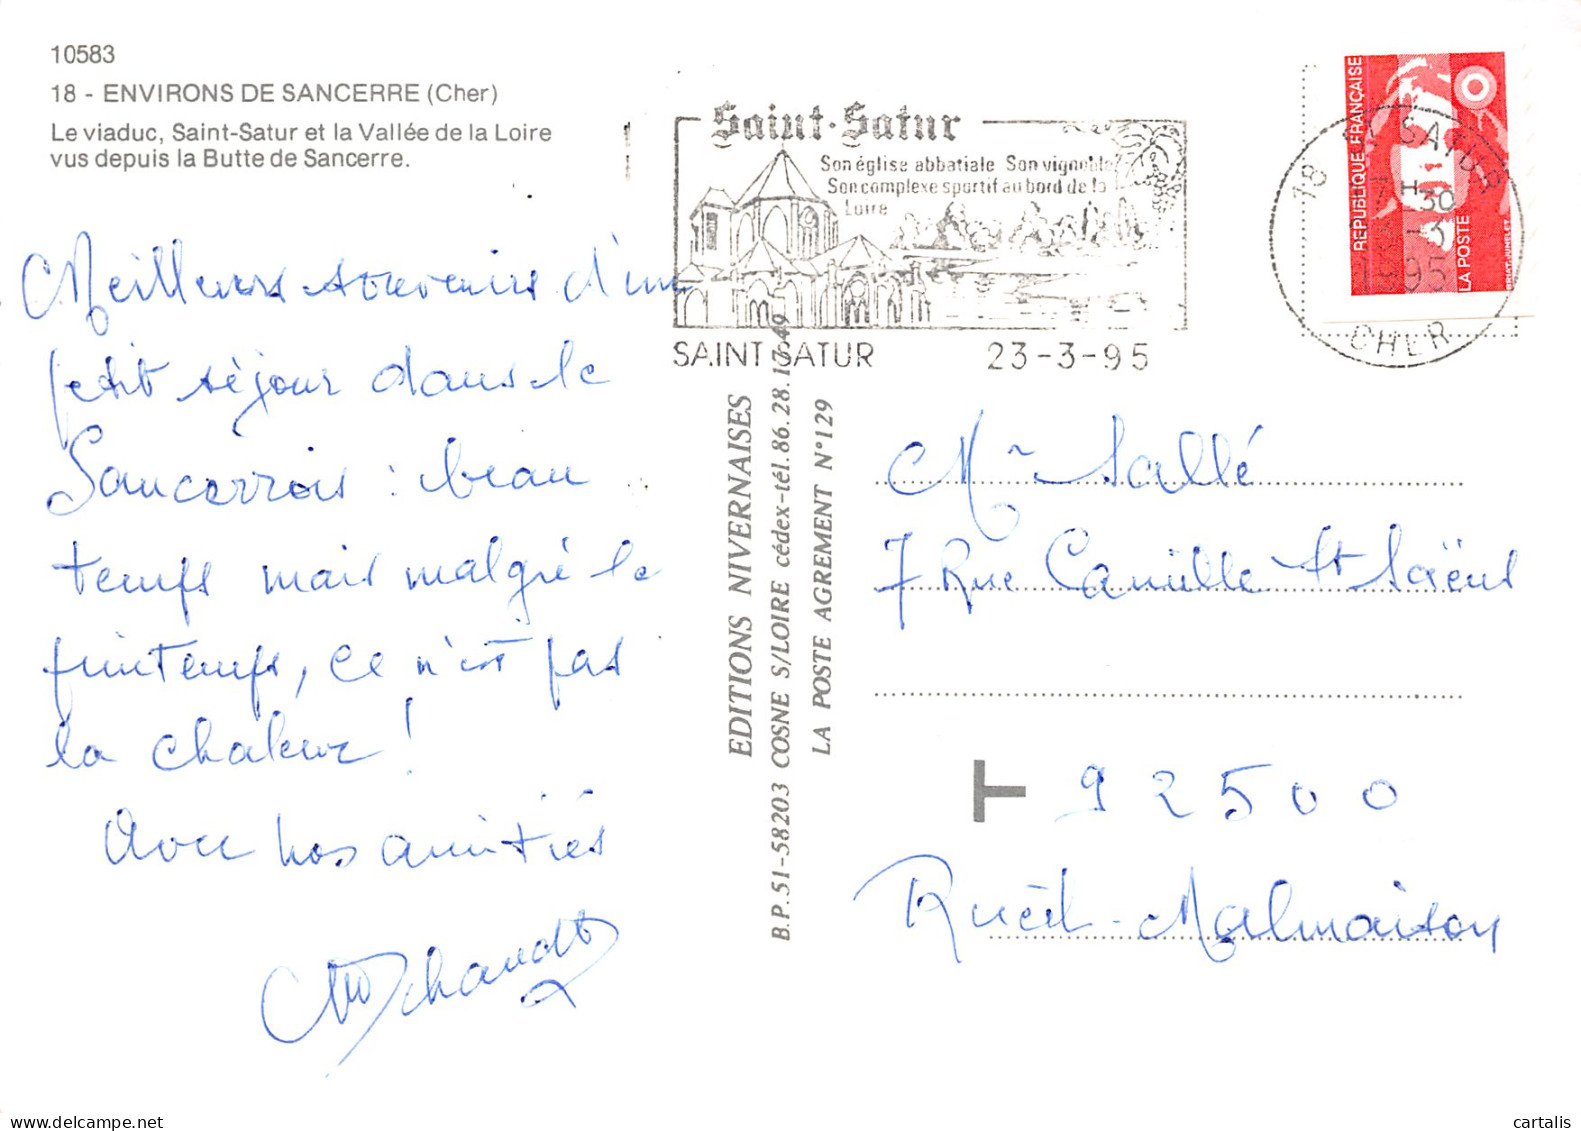 10583
18 - ENVIRONS DE SANCERRE (Cher)
Le viaduc, Saint-Satur et la Vallée de la Loire
vus depuis la Butte de Sancerre.
Meilleurs souvenirs d'un
petit séjour dans le
Sancerrois : beau
temps mais malgré le
printemps, ce n'est pas
la chaleur !
Avec nos amitiés
Saint-Satur
Son église abbatiale Son vignoble
Son complexe sportif au bord de la
Loire
SAINT SATUR 23-3-95
18 ST SATUR
17 H 30
23-3
1995
CHER
REPUBLIQUE FRANÇAISE
LA POSTE
EDITIONS NIVERNAISES
B.P. 51-58203 COSNE S/LOIRE cédex-tél. 86.28.17.49
LA POSTE AGREMENT N°129
Mr Sallé
7 Rue Camille St Saëns
T 92500
Rueil-Malmaison
cartalis sur delcampe.net